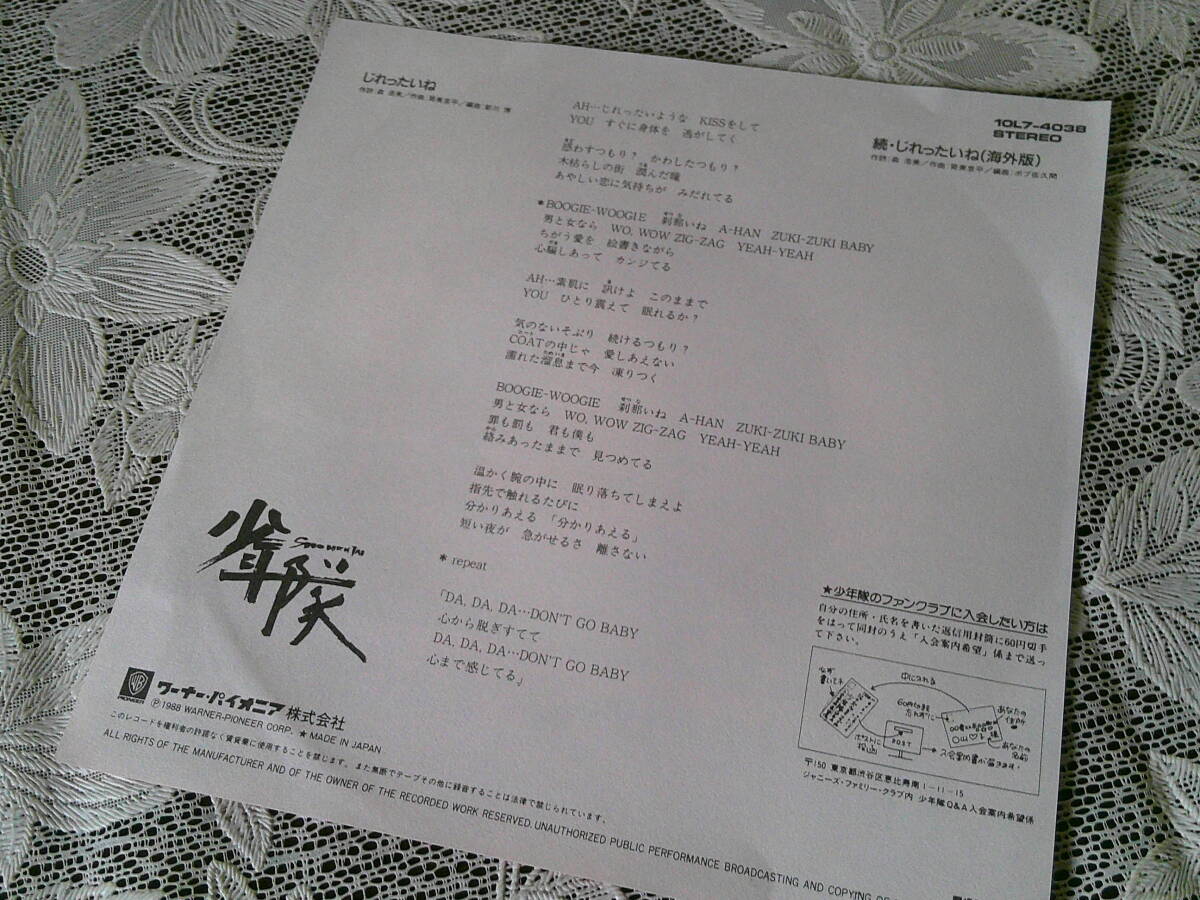 じれったいね
作詞:森 浩美/作曲:筒美京平/編曲:新川 博
10L7-4038
STEREO
続・じれったいね(海外版)
作詞:森 浩美/作曲:筒美京平/編曲:ボブ佐久間
AH…じれったいような KISSをして
YOU すぐに身体を 逃がしてく
惑わすつもり? かわしたつもり?
木枯らしの街 潤んだ瞳
あやしい恋に気持ちが みだれてる
*BOOGIE-WOOGIE 刹那いね A-HAN ZUKI-ZUKI BABY
男と女なら WO, WOW ZIG-ZAG YEAH-YEAH
ちがう愛を 絵書きながら
心騙しあって カンジてる
AH…素肌に 訊けよ このままで
YOU ひとり震えて 眠れるか?
気のないそぶり 続けるつもり?
COATの中じゃ 愛しあえない
濡れた溜息まで今 凍りつく
BOOGIE-WOOGIE 刹那いね A-HAN ZUKI-ZUKI BABY
男と女なら WO, WOW ZIG-ZAG YEAH-YEAH
罪も罰も 君も僕も
絡みあったままで 見つめてる
温かく腕の中に 眠り落ちてしまえよ
指先で触れるたびに
分かりあえる 「分かりあえる」
短い夜が 急がせるさ 離さない
* repeat
「DA, DA, DA…DON'T GO BABY
心から脱ぎすてて
DA, DA, DA…DON'T GO BABY
心まで感じてる」
少年隊
SHONENTAI
WB
PIONEER
ワーナー・パイオニア株式会社
Ⓟ1988 WARNER-PIONEER CORP. ★ MADE IN JAPAN
このレコードを権利者の許諾なく賃貸業に使用することを禁じます。また無断でテープその他に録音することは法律で禁じられています。
ALL RIGHTS OF THE MANUFACTURER AND OF THE OWNER OF THE RECORDED WORK RESERVED. UNAUTHORIZED PUBLIC PERFORMANCE BROADCASTING AND COPYING OF
★少年隊のファンクラブに入会したい方は
自分の住所・氏名を書いた返信用封筒に60円切手
をはって同封のうえ「入会案内希望」係まで送っ
て下さい。
中に入れる
必ず
書いてネ
60円切手
忘れずに
あなたの
住所
あなたの
名前
ポストに
投函
POST
入会案内書が届きます・
〒150 東京都渋谷区恵比寿南1-11-15
ジャニーズ・ファミリー・クラブ内 少年隊Q&A入会案内希望係